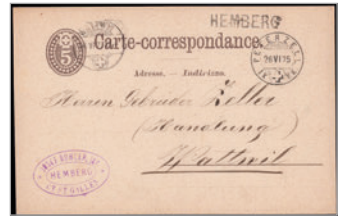 HEMBERG
Carte-correspondance.
5
PETERZELL
26 VI 75
Adresse. — Indirizzo.
Herren Gebrüder Zeller
(Handlung)
Wattwil
HEMBERG
CT ST GALLEN